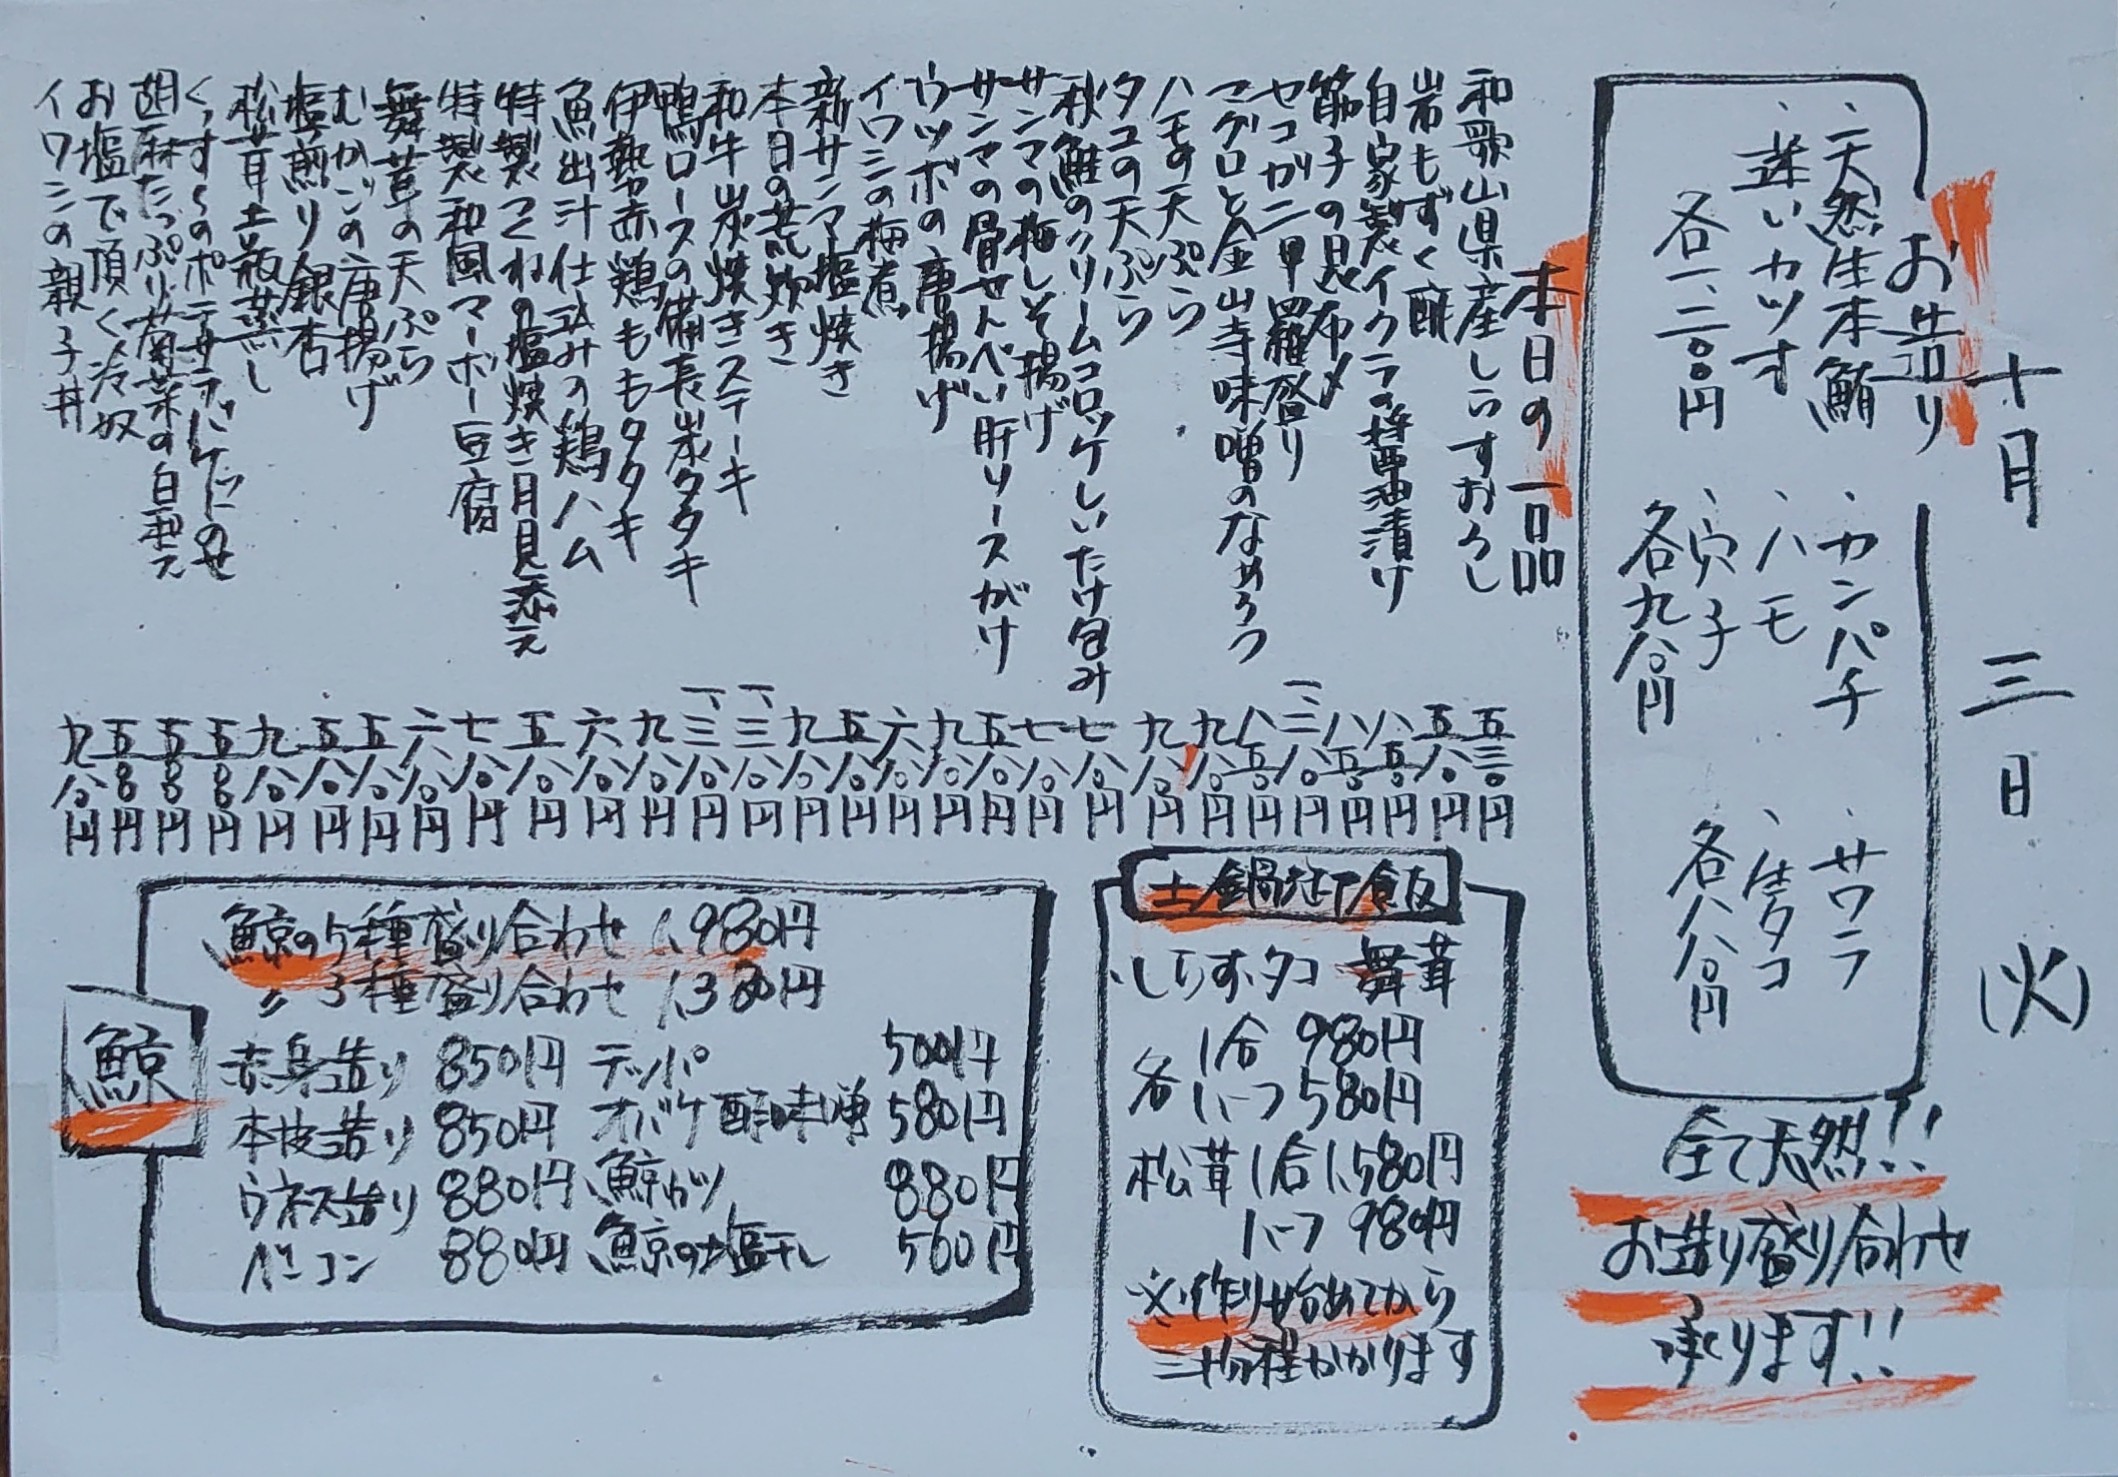 十月三日(火)
お造り
、天然生本鮪
、迷いカツオ
各一、二〇〇円
、カンパチ
、ハモ
、穴子
各九八〇円
、サワラ
、生タコ
各八八〇円
全て天然!!
お造り盛り合わせ
承ります!!
本日の一品
和歌山県産しらすおろし 五三〇円
岩もずく酢 五八〇円
自家製イクラの醤油漬け 八五〇円
筋子の昆布〆 八五〇円
セコガニ甲羅盛り 一、三八〇円
マグロと金山寺味噌のなめろう 八五〇円
ハモの天ぷら 九八〇円
タコの天ぷら 九八〇円
秋鮭のクリームコロッケしいたけ包み 七八〇円
サンマの梅しそ揚げ 七八〇円
サンマの骨せんべい肝ソースがけ 五八〇円
ウツボの唐揚げ 九八〇円
イワシの梅煮 六八〇円
新サンマ塩焼き 五八〇円
本日の荒炊き 九八〇円
和牛炭焼きステーキ 一、三八〇円
鴨ロースの備長炭タタキ 一、三八〇円
伊勢赤鶏ももタタキ 九八〇円
魚出汁仕込みの鶏ハム 六八〇円
特製つくねの塩焼き月見添え 五八〇円
特製和風マーボー豆腐 七八〇円
舞茸の天ぷら 六八〇円
むかごの唐揚げ 五八〇円
塩煎り銀杏 五八〇円
松茸土瓶蒸し 九八〇円
くっす～のポテサラバケットのせ 五〇〇円
胡麻たっぷり菊菜の白和え 五〇〇円
お塩で頂く冷奴 五〇〇円
イワシの親子丼 九八〇円
土鍋炊き御飯
、しらす、タコ 舞茸
各 1合 980円
ハーフ 580円
松茸 1合 1,580円
ハーフ 980円
※作り始めてから
三十分程かかります
鯨
、鯨の5種盛り合わせ 1,980円
〃 3種盛り合わせ 1,380円
赤身造り 850円 テッパ 500円
本皮造り 850円 オバケ酢味噌 580円
ウネス造り 880円 鯨カツ 880円
ベーコン 880円 鯨の塩干し 560円